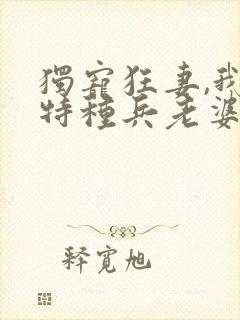 獨寵狂妻,我
特種兵老婆
釋寬旭